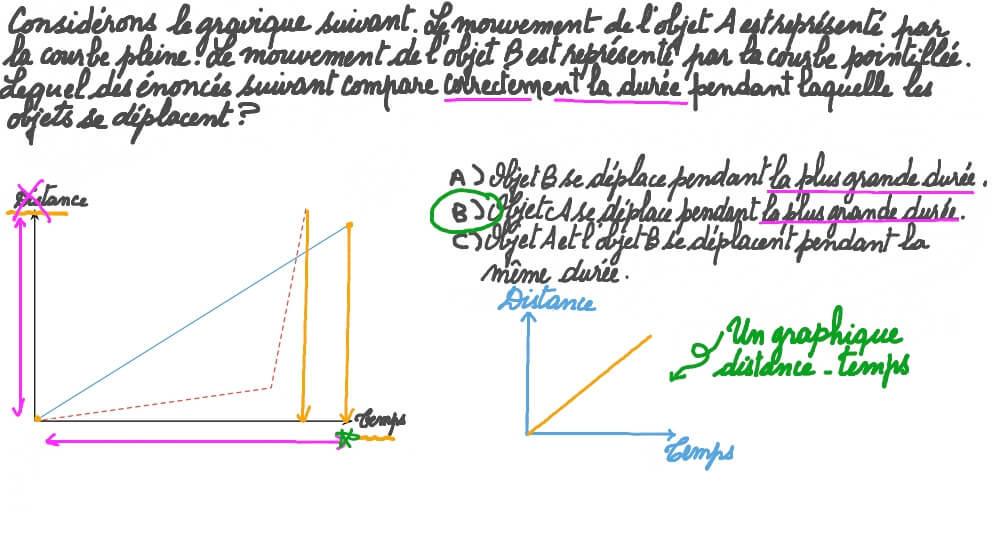 Considérons le gravique suivant. Le mouvement de l'objet A est représenté par
la courbe pleine. Le mouvement de l'objet B est représenté par la courbe pointillée.
Lequel des énoncés suivant compare correctement la durée pendant laquelle les
objets se déplacent ?
A) Objet B se déplace pendant la plus grande durée.
B) Objet A se déplace pendant la plus grande durée.
C) Objet A et l'objet B se déplacent pendant la
même durée.
Distance
Temps
Distance
Temps
Un graphique
distance - temps